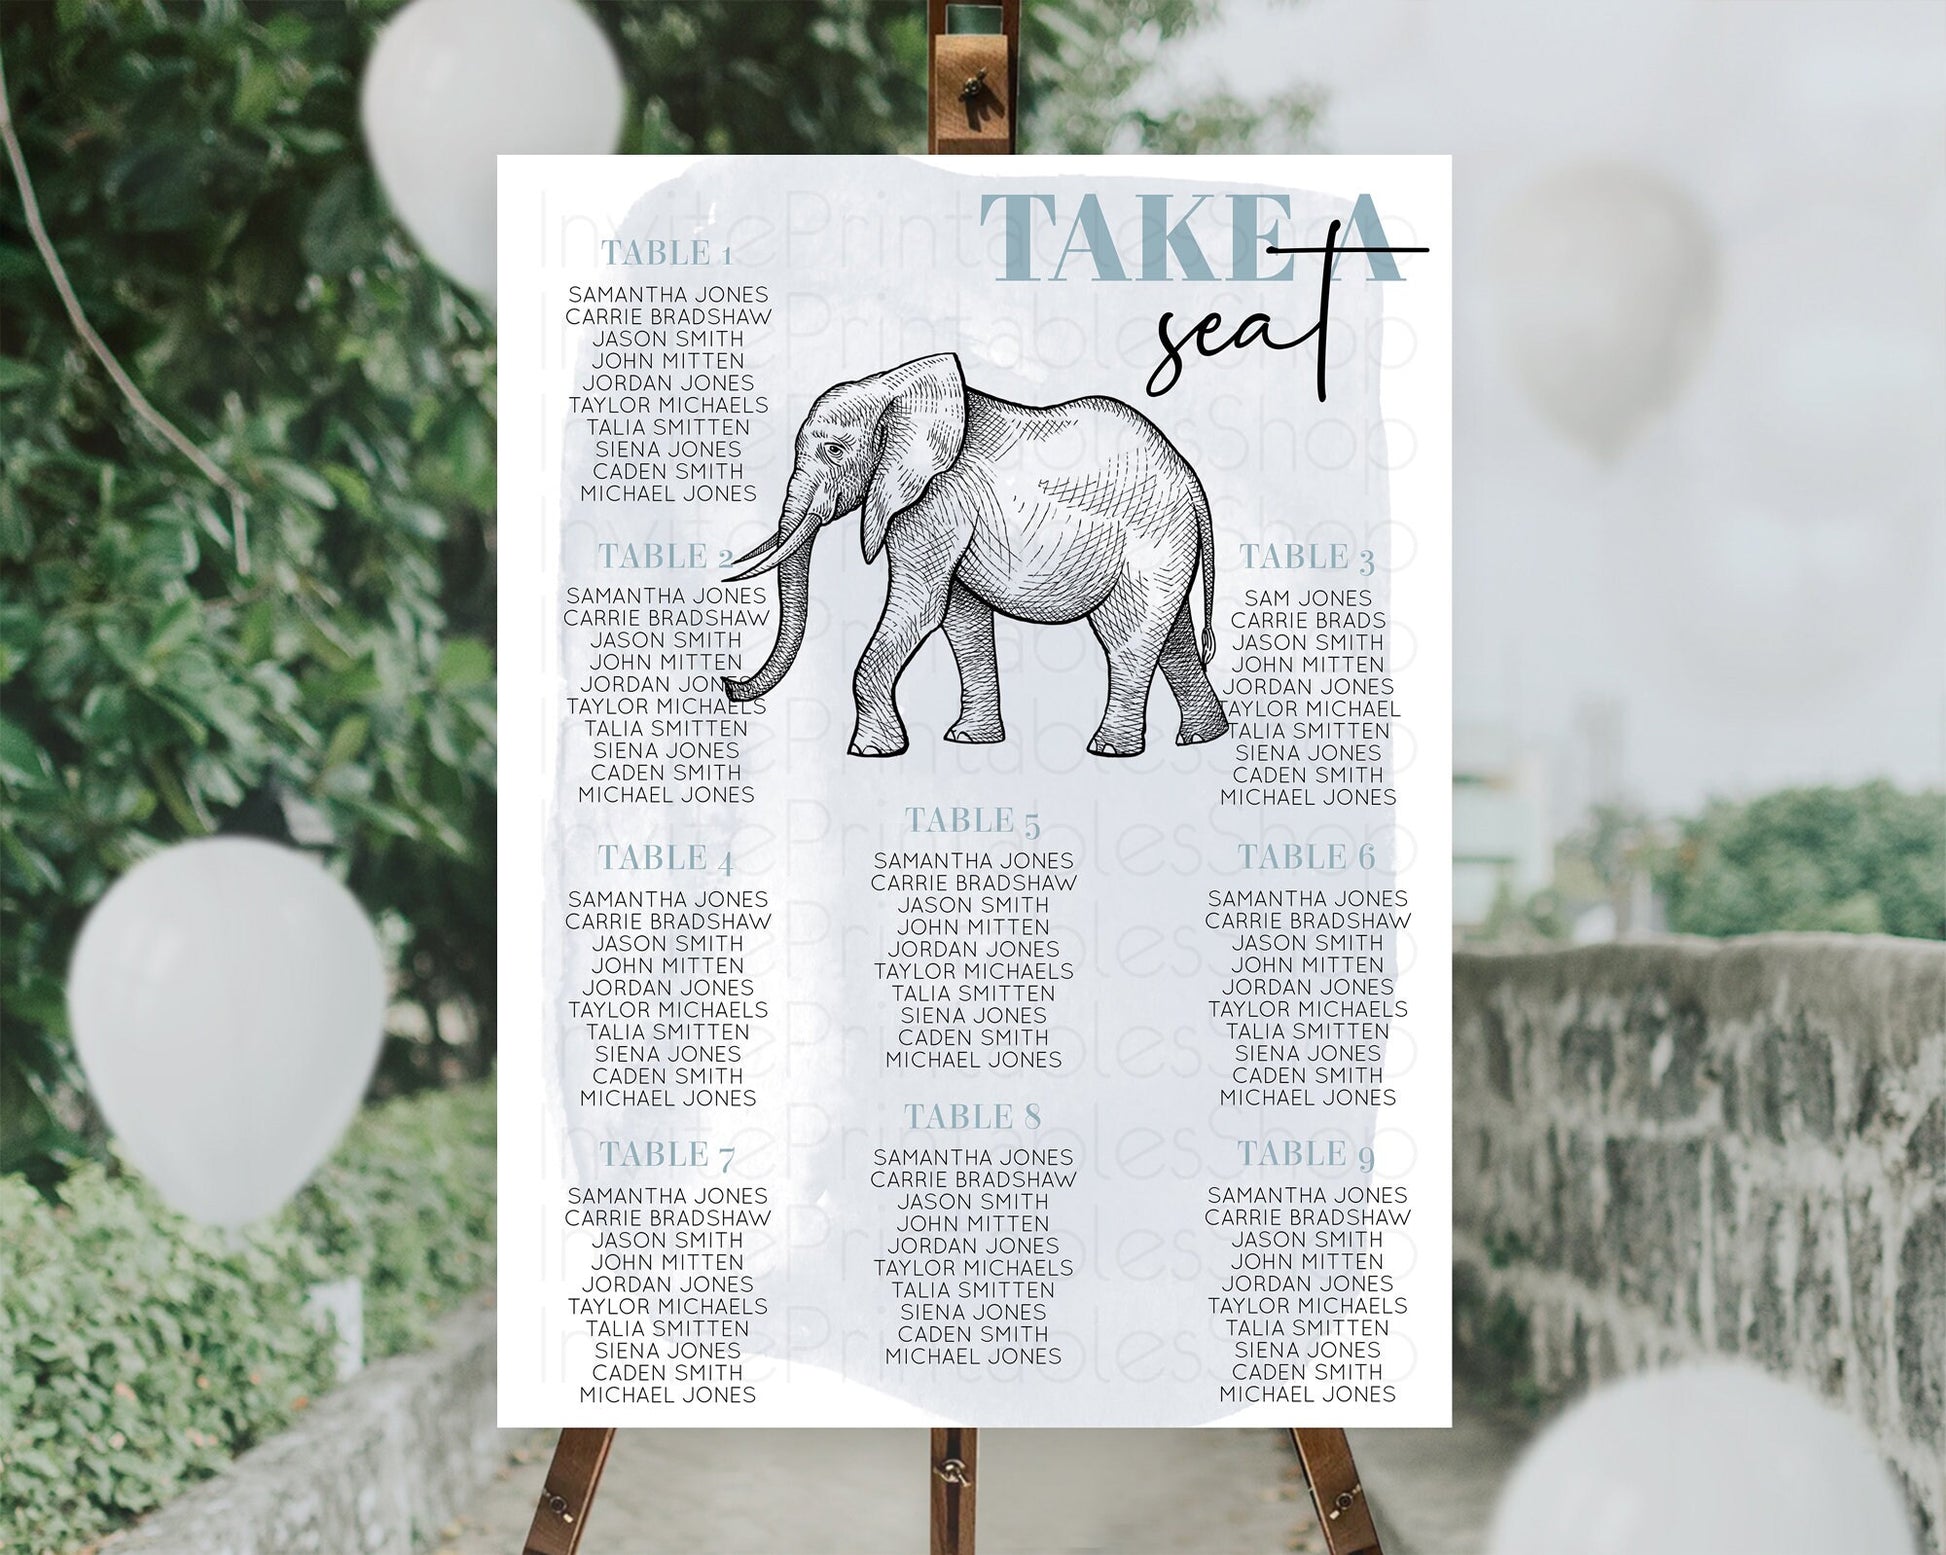 TAKE A
seat
TABLE 1
SAMANTHA JONES
CARRIE BRADSHAW
JASON SMITH
JOHN MITTEN
JORDAN JONES
TAYLOR MICHAELS
TALIA SMITTEN
SIENA JONES
CADEN SMITH
MICHAEL JONES
TABLE 2
SAMANTHA JONES
CARRIE BRADSHAW
JASON SMITH
JOHN MITTEN
JORDAN JONES
TAYLOR MICHAELS
TALIA SMITTEN
SIENA JONES
CADEN SMITH
MICHAEL JONES
TABLE 3
SAM JONES
CARRIE BRADS
JASON SMITH
JOHN MITTEN
JORDAN JONES
TAYLOR MICHAEL
TALIA SMITTEN
SIENA JONES
CADEN SMITH
MICHAEL JONES
TABLE 4
SAMANTHA JONES
CARRIE BRADSHAW
JASON SMITH
JOHN MITTEN
JORDAN JONES
TAYLOR MICHAELS
TALIA SMITTEN
SIENA JONES
CADEN SMITH
MICHAEL JONES
TABLE 5
SAMANTHA JONES
CARRIE BRADSHAW
JASON SMITH
JOHN MITTEN
JORDAN JONES
TAYLOR MICHAELS
TALIA SMITTEN
SIENA JONES
CADEN SMITH
MICHAEL JONES
TABLE 6
SAMANTHA JONES
CARRIE BRADSHAW
JASON SMITH
JOHN MITTEN
JORDAN JONES
TAYLOR MICHAELS
TALIA SMITTEN
SIENA JONES
CADEN SMITH
MICHAEL JONES
TABLE 7
SAMANTHA JONES
CARRIE BRADSHAW
JASON SMITH
JOHN MITTEN
JORDAN JONES
TAYLOR MICHAELS
TALIA SMITTEN
SIENA JONES
CADEN SMITH
MICHAEL JONES
TABLE 8
SAMANTHA JONES
CARRIE BRADSHAW
JASON SMITH
JOHN MITTEN
JORDAN JONES
TAYLOR MICHAELS
TALIA SMITTEN
SIENA JONES
CADEN SMITH
MICHAEL JONES
TABLE 9
SAMANTHA JONES
CARRIE BRADSHAW
JASON SMITH
JOHN MITTEN
JORDAN JONES
TAYLOR MICHAELS
TALIA SMITTEN
SIENA JONES
CADEN SMITH
MICHAEL JONES
InvitePrintablesShop
InvitePrintablesShop
InvitePrintablesShop
InvitePrintablesShop
InvitePrintablesShop
InvitePrintablesShop
InvitePrintablesShop
InvitePrintablesShop
InvitePrintablesShop
InvitePrintablesShop
InvitePrintablesShop
InvitePrintablesShop